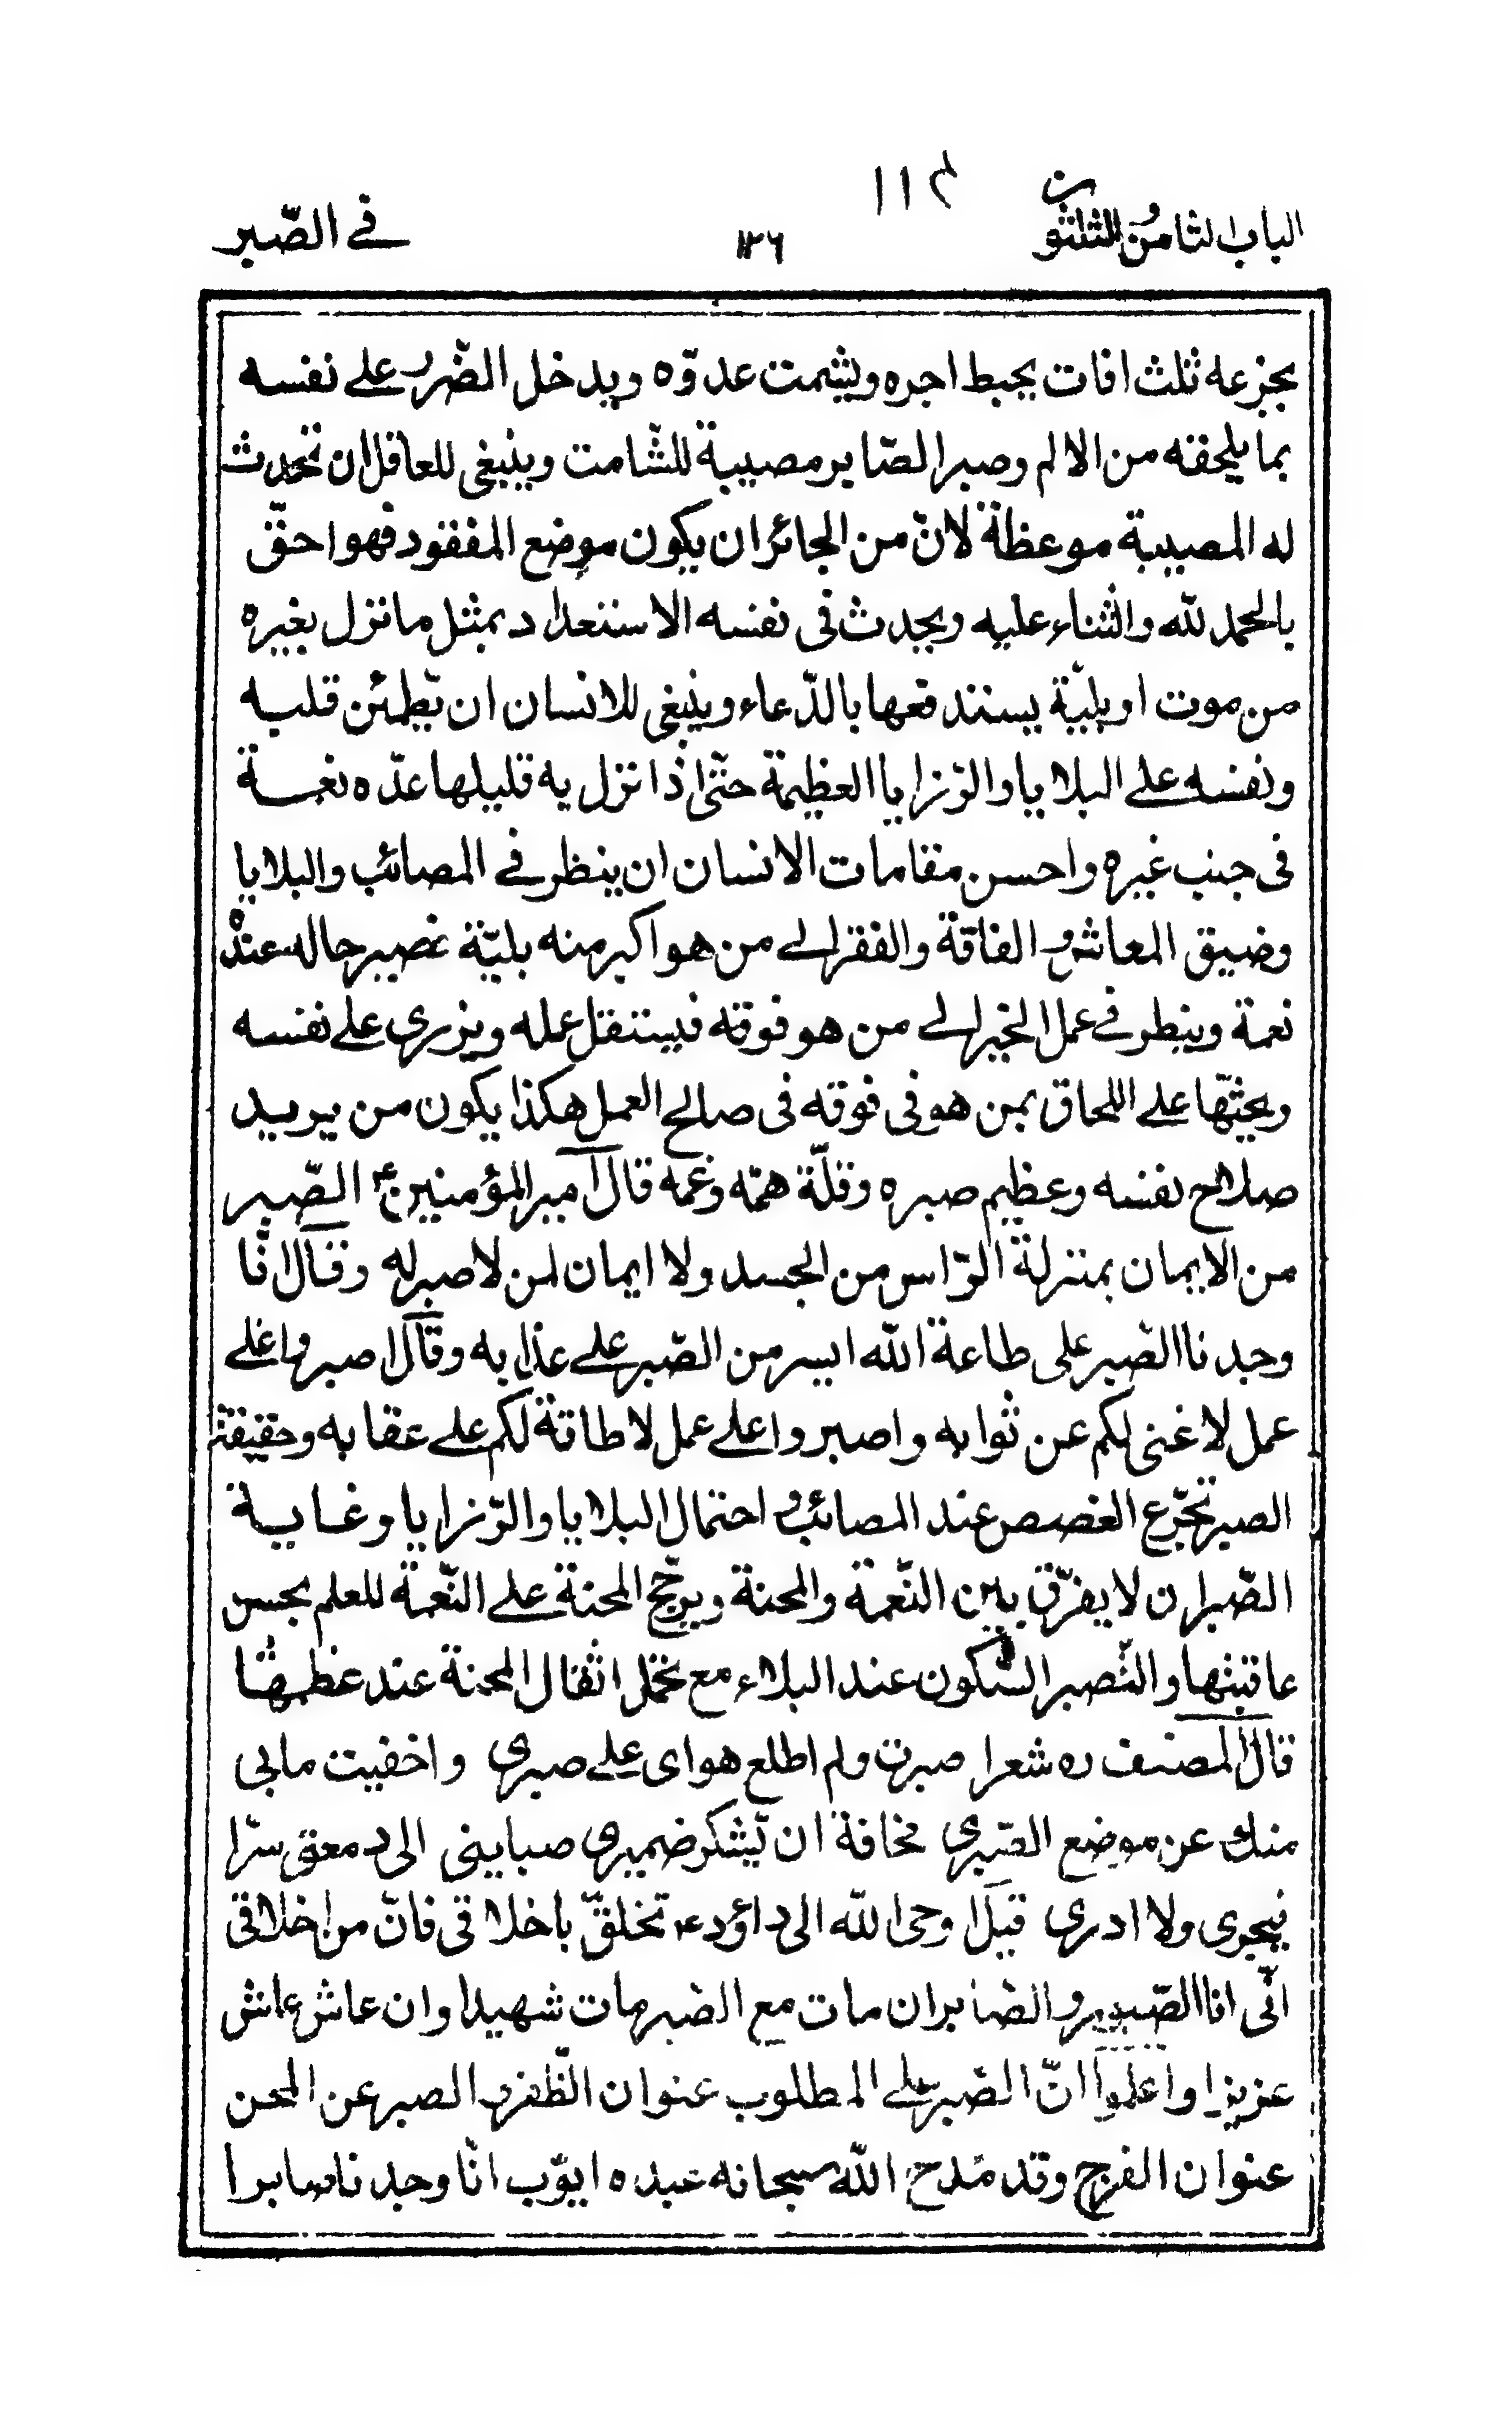 الباب الثامن والثلثون
١١٤
١٣٦
في الصّبر
بجزعه ثلث افات يحبط اجره ويشمت عدوّه ويدخل الضّرر على نفسه
بما يلحقه من الالم وصبر الصّابر مصيبة للشّامت وينبغى للعاقل ان تحدث
له المصيبة موعظة لانّ من الجائز ان يكون موضع المفقود فهو احقّ
بالحمد لله والثناء عليه ويحدث فى نفسه الاستعداد بمثل ما نزل بغيره
من موت او بليّة يستدفعها بالدّعاء وينبغى للانسان ان يّطمئن قلبه
ونفسه على البلايا والرّزايا العظيمة حتّى اذا نزل به قليلها عدّه نعمة
فى جنب غيره واحسن مقامات الانسان ان ينظر في المصائب والبلايا
وضيق المعاش والفاقة والفقر الى من هو اكبر منه بليّة تصير حاله عنده
نعمة وينظر في عمل الخير الى من هو فوقه فيستقل عمله ويزرى على نفسه
ويحثّها على اللحاق بمن هو فى فوقه فى صالح العمل هكذا يكون من يريد
صلاح نفسه وعظيم صبره وقلّة همّه وغمه قال امير المؤمنين ع الصّبر
من الايمان بمنزلة الرّاس من الجسد ولا ايمان لمن لا صبر له وقال انّا
وجدنا الصّبر على طاعة الله ايسر من الصّبر على عذابه وقال اصبروا على
عمل لا غنى لكم عن ثوابه واصبروا على عمل لا طاقة لكم على عقابه وحقيقة
الصبر تجرّع الغصص عند المصائب و احتمال البلايا والرّزايا وغاية
الصّبر ان لا يفرّق بين النّعمة والمحنة ويرجّح المحنة على النّعمة للعلم بحسن
عاقبتها والتّصبر السّكون عند البلاء مع تحمّل اثقال المحنة عند عظمها
قال المصنف ره شعرا صبرت ولم اطلع هواى على صبرى واخفيت ما بى
منك عن موضع الصّبرى مخافة ان يّشكر ضميرى صبابتى الى دمعتى سرّا
فيجرى ولا ادرى قيل اوحى الله الى داؤد ع تخلقّ باخلاقى فانّ من اخلاقى
انّى انا الصّبور والصّابر ان مات مع الصّبر مات شهيدا وان عاش عاش
عزيزا واعلموا انّ الصّبر على المطلوب عنوان الظّفر و الصبر عن المحن
عنوان الفرج وقد مدح الله سبحانه عبده ايّوب انّا وجدناه صابرا